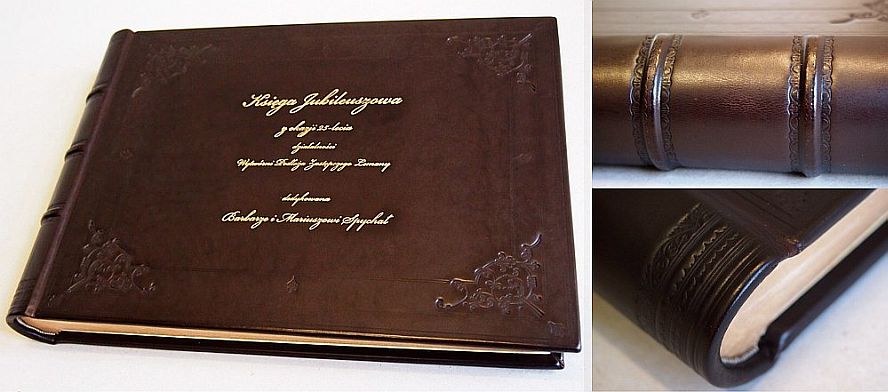 Księga Jubileuszowa
z okazji 25-lecia
działalności
Wytwórni Podłoża Zastępczego Łomany
dedykowana
Barbarze i Mariuszowi Spychał